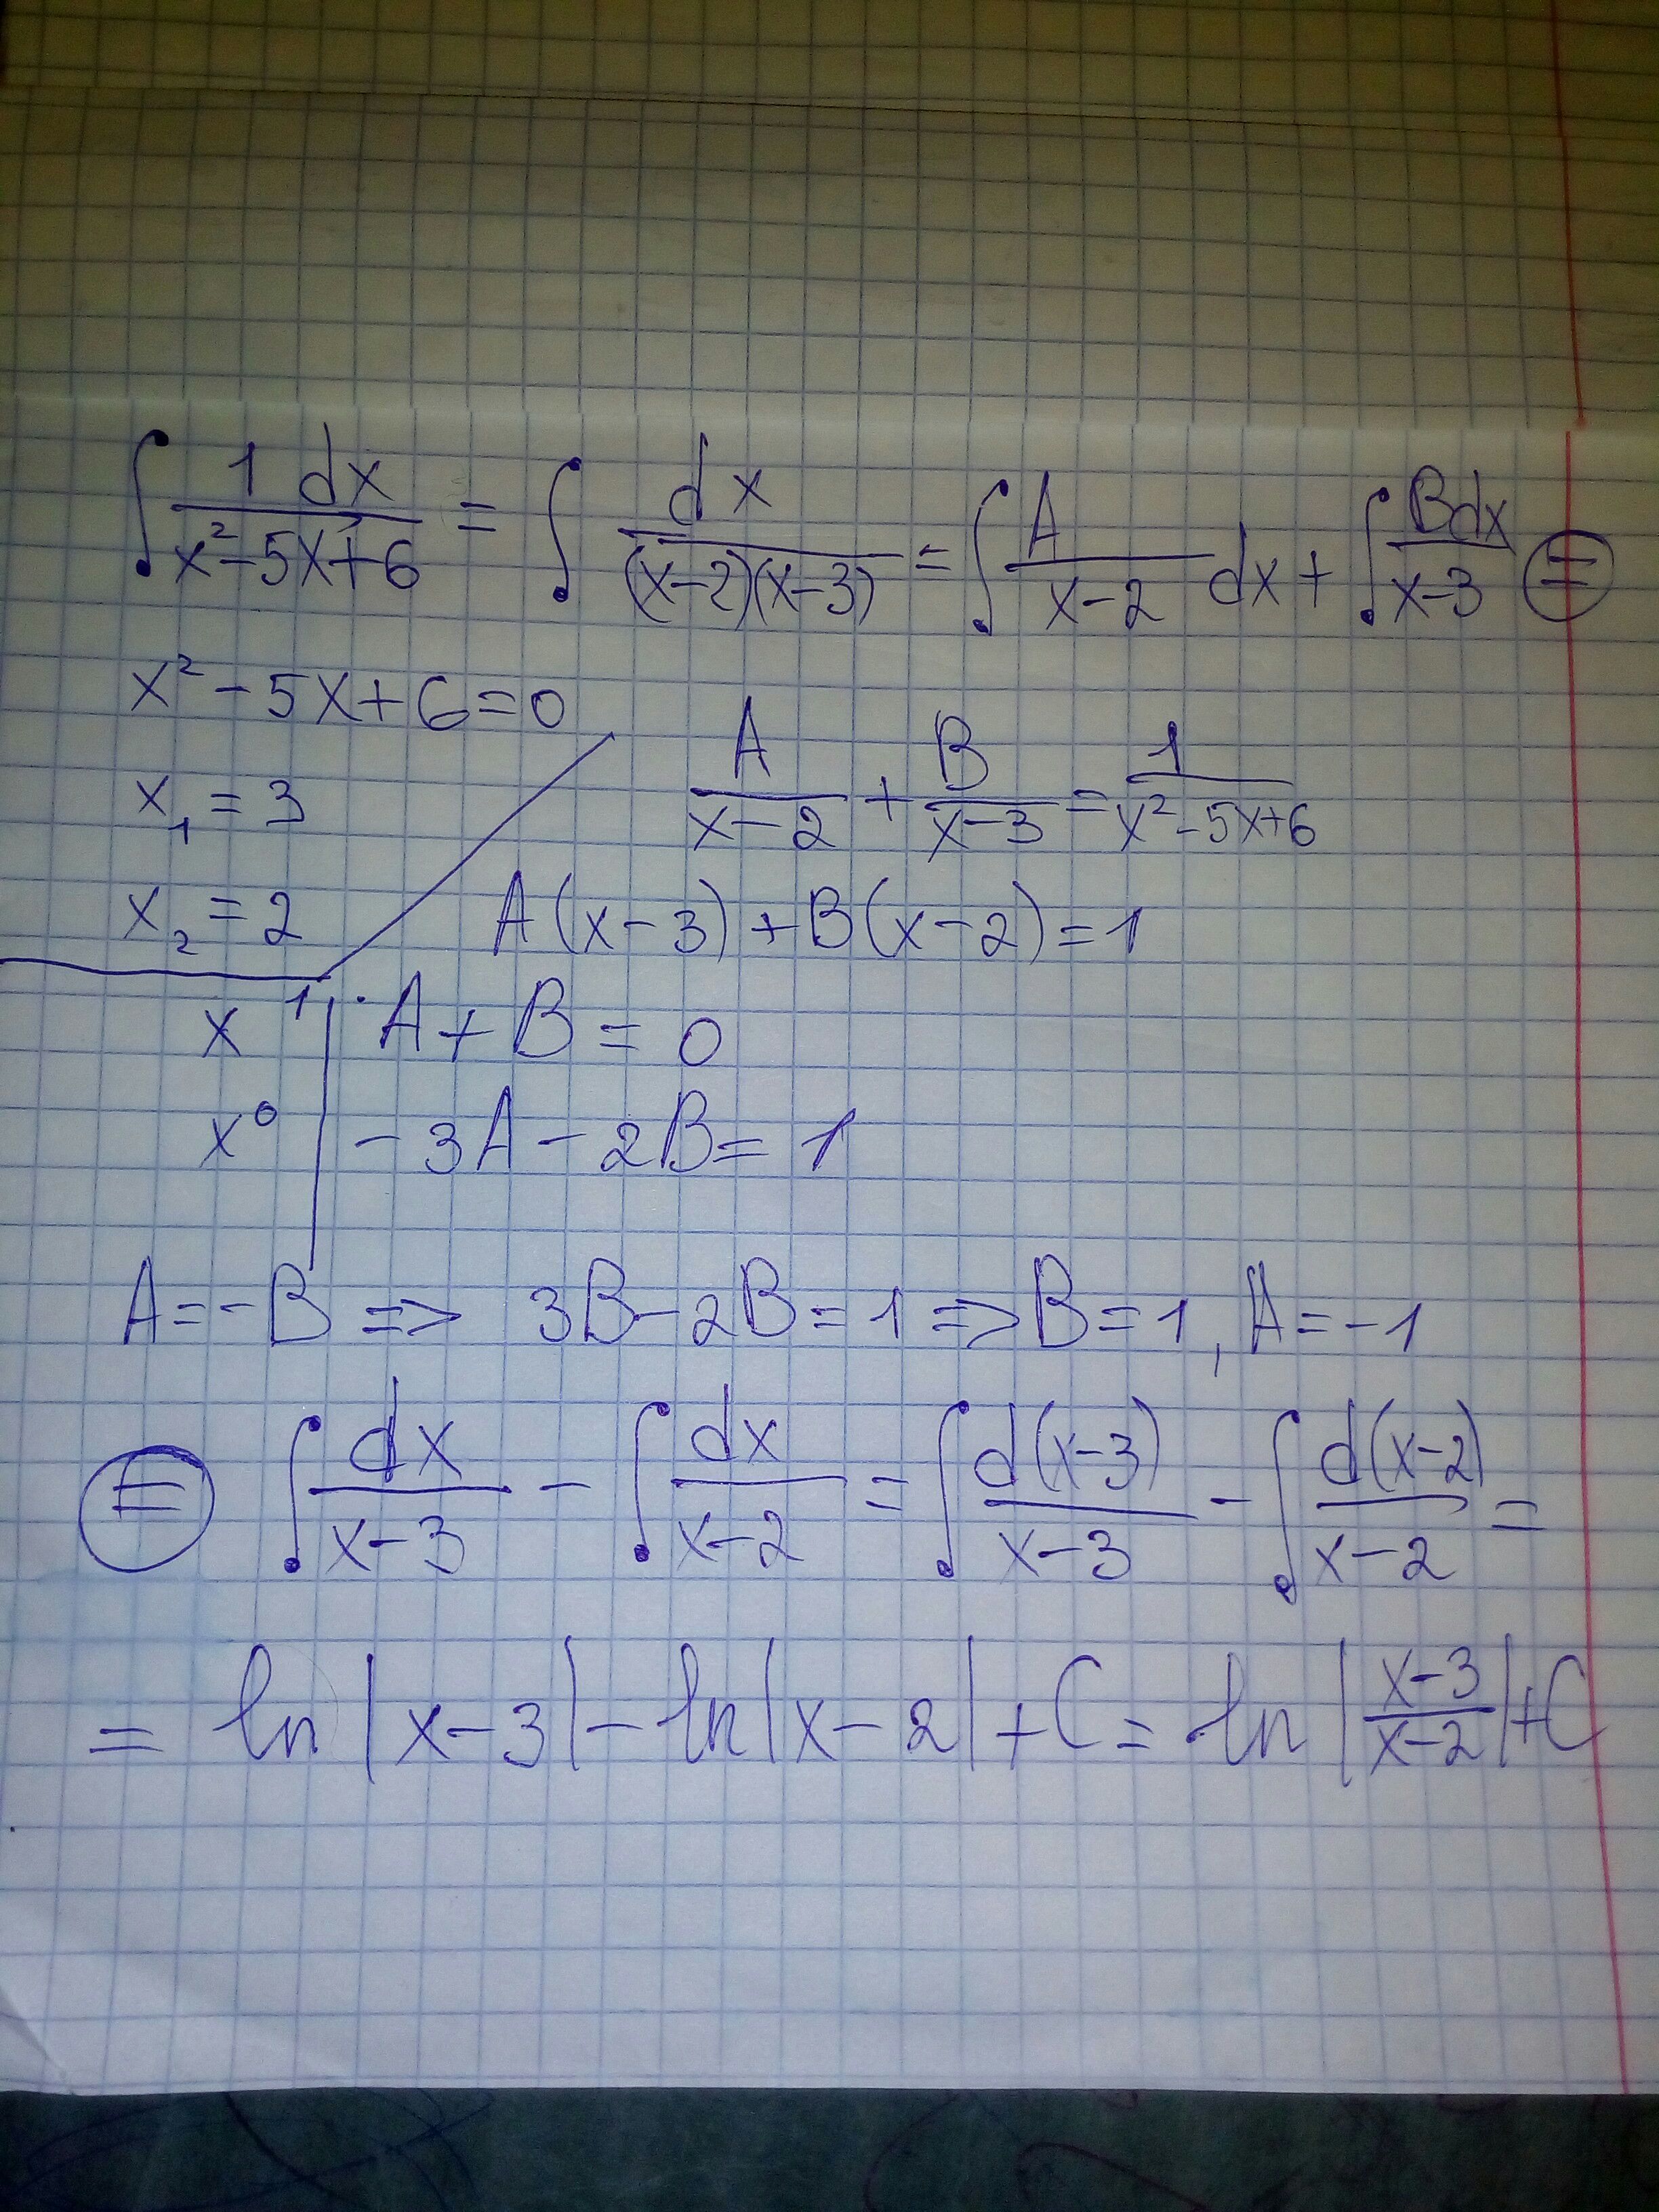 ∫ 1 dx / (x² - 5x + 6) = ∫ dx / ((x-2)(x-3)) = ∫ A / (x-2) dx + ∫ Bdx / (x-3) ⊜
x² - 5x + 6 = 0
x₁ = 3
x₂ = 2
A / (x-2) + B / (x-3) = 1 / (x² - 5x + 6)
A(x-3) + B(x-2) = 1
x¹ | A + B = 0
x⁰ | -3A - 2B = 1
A = -B => 3B - 2B = 1 => B = 1, A = -1
⊜ ∫ dx / (x-3) - ∫ dx / (x-2) = ∫ d(x-3) / (x-3) - ∫ d(x-2) / (x-2) =
= ln|x-3| - ln|x-2| + C = ln|(x-3) / (x-2)| + C